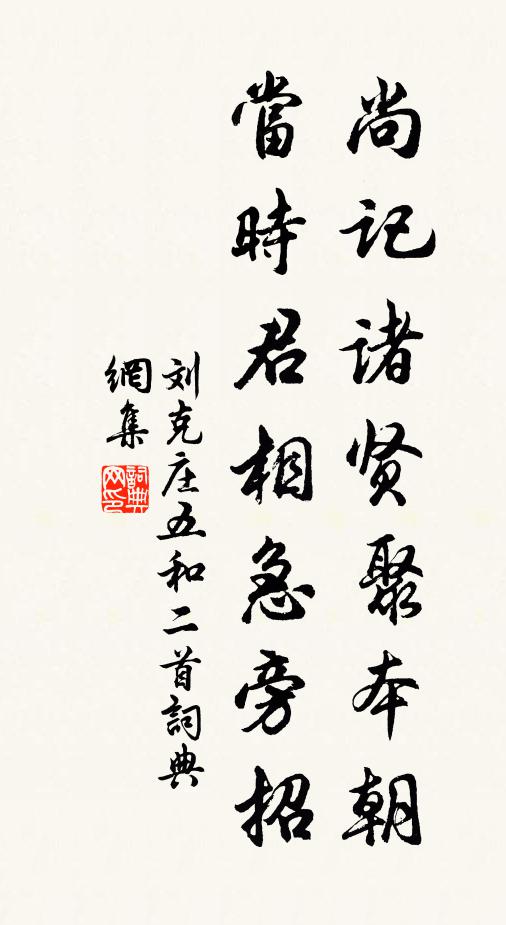 尚记诸贤聚本朝
當時君相急旁招
刘克庄五和二首詞典
網集
詞典网印